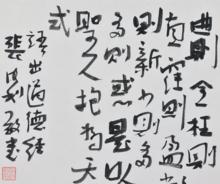 曲則全枉則
直窪則盈
則新少則多
多則惑是以
聖人抱一天
式
語出道德經
敬書